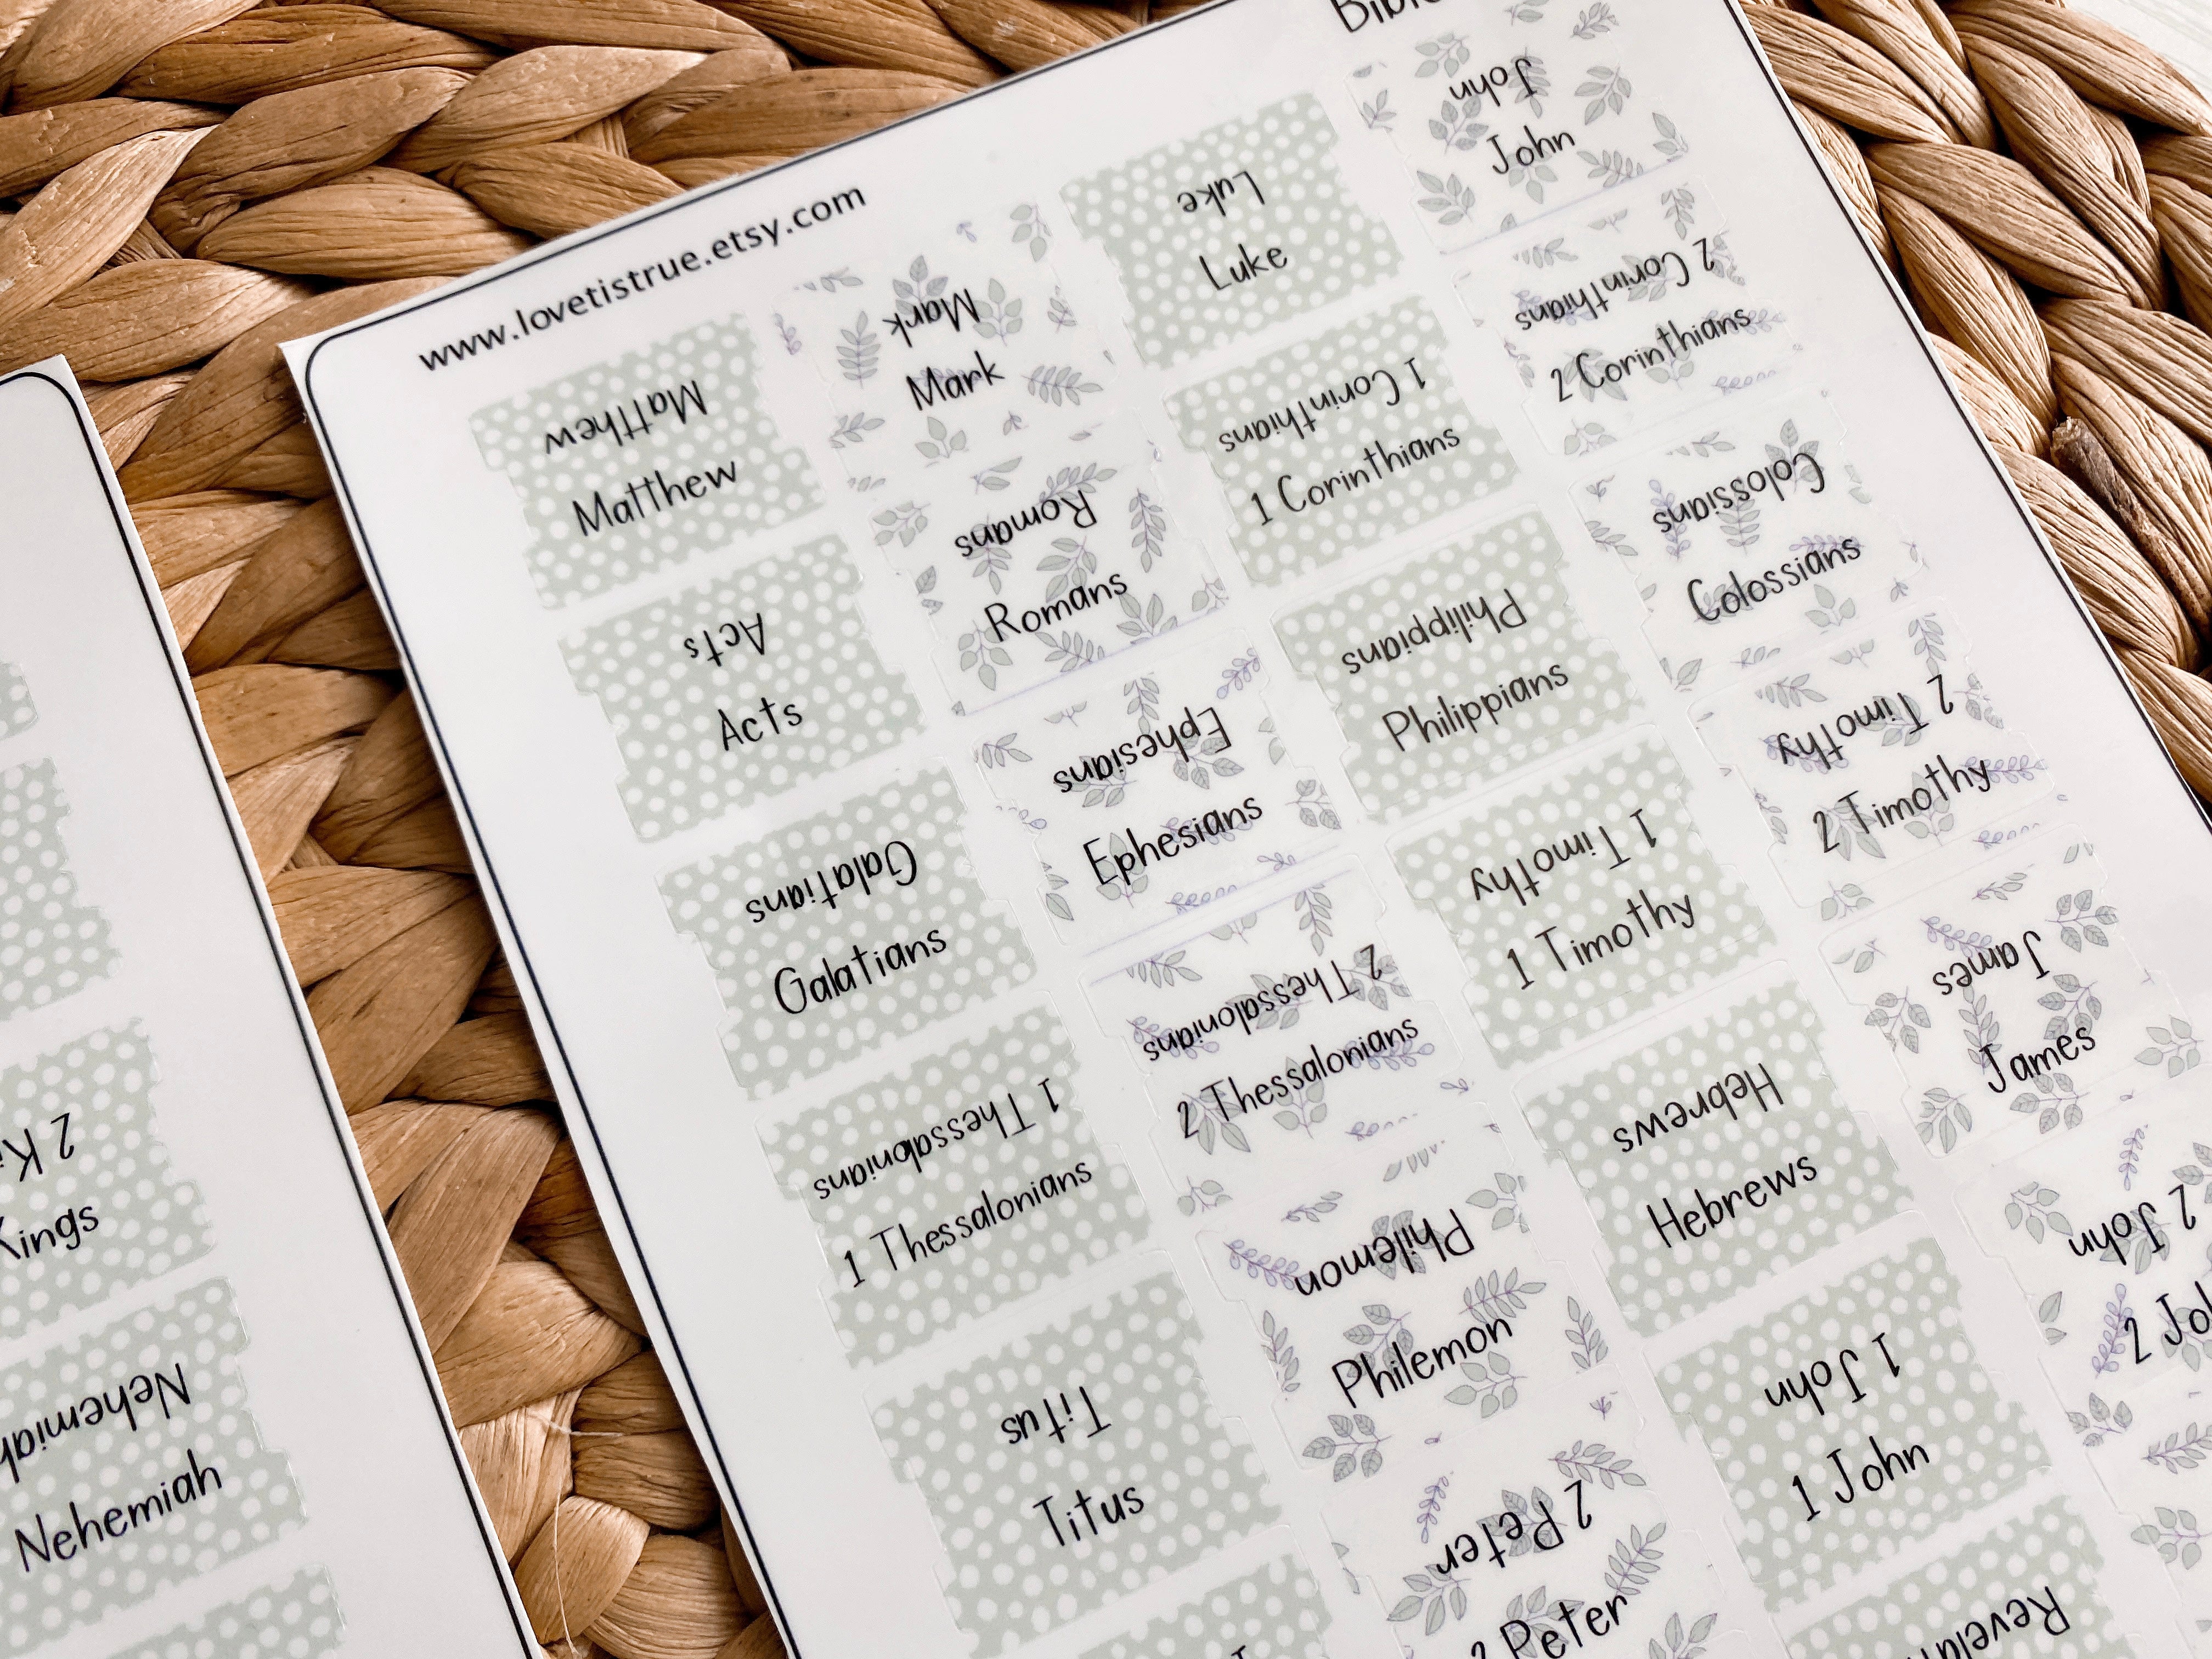 www.lovetistrue.etsy.com
Matthew
Matthew
Mark
Mark
Luke
Luke
John
John
Acts
Acts
Romans
Romans
1 Corinthians
1 Corinthians
2 Corinthians
2 Corinthians
Galatians
Galatians
Ephesians
Ephesians
Philippians
Philippians
Colossians
Colossians
1 Thessalonians
1 Thessalonians
2 Thessalonians
2 Thessalonians
1 Timothy
1 Timothy
2 Timothy
2 Timothy
Titus
Titus
Philemon
Philemon
Hebrews
Hebrews
James
James
2 Peter
2 Peter
1 John
1 John
2 John
2 Jo
2 Ki
Kings
Nehemiah
Nehemiah